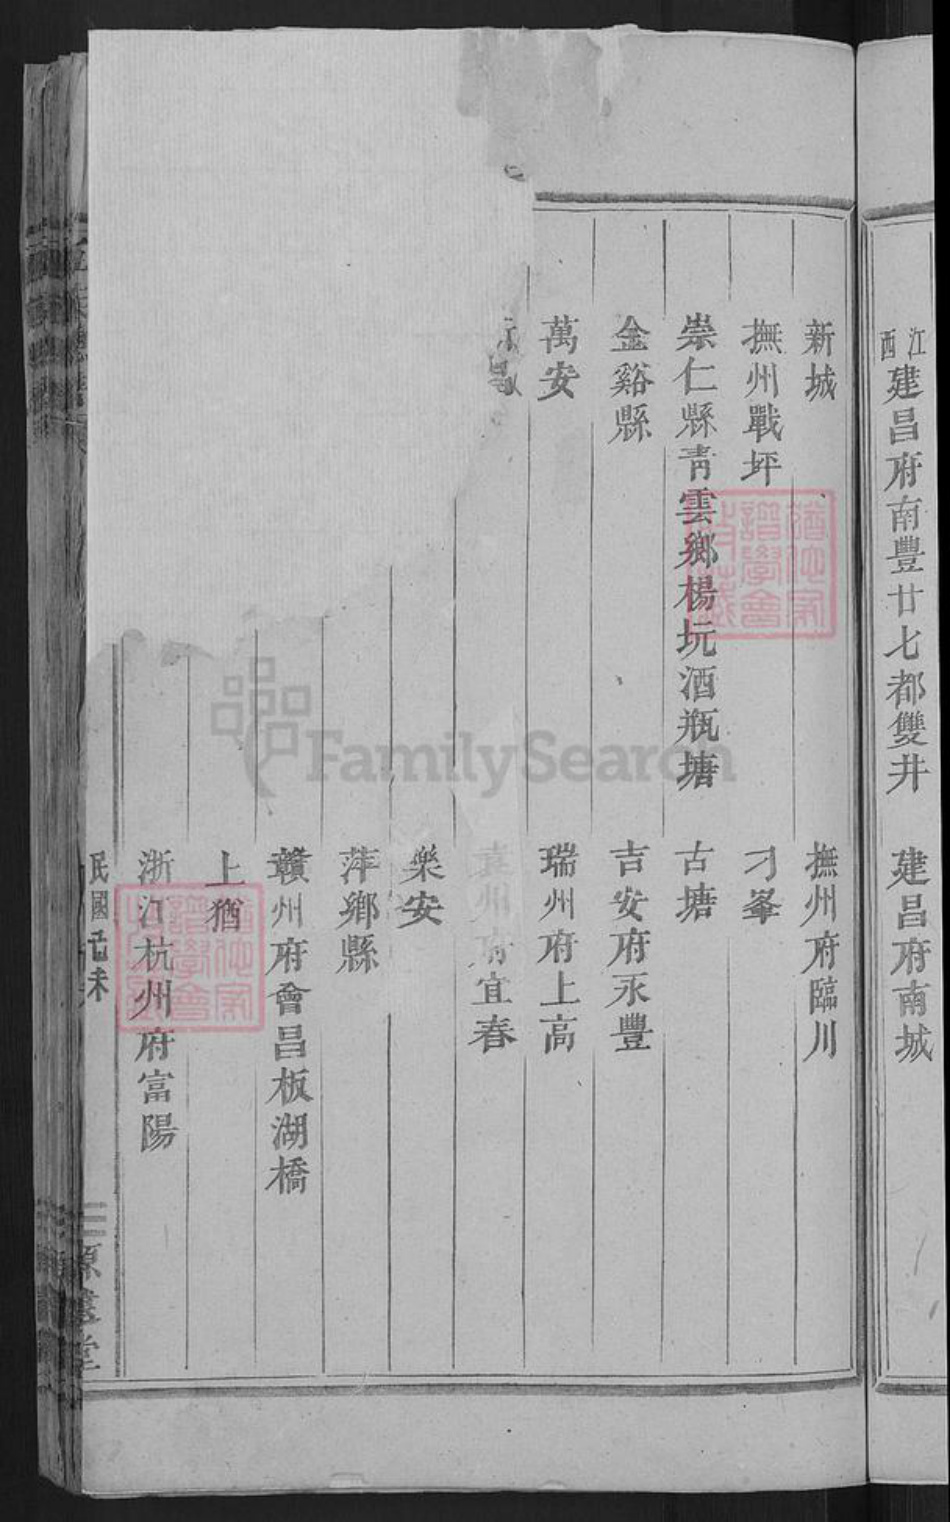 江西建昌府南豐廿七都雙井 建昌府南城
新城 撫州府臨川
撫州戰坪 刁峯
崇仁縣青雲鄉楊坑酒瓶塘 古塘
金谿縣 吉安府永豐
萬安 瑞州府上高
袁州府宜春
樂安
萍鄉縣
贛州府會昌板湖橋
上猶
浙江杭州府富陽
民國己未
FamilySearch